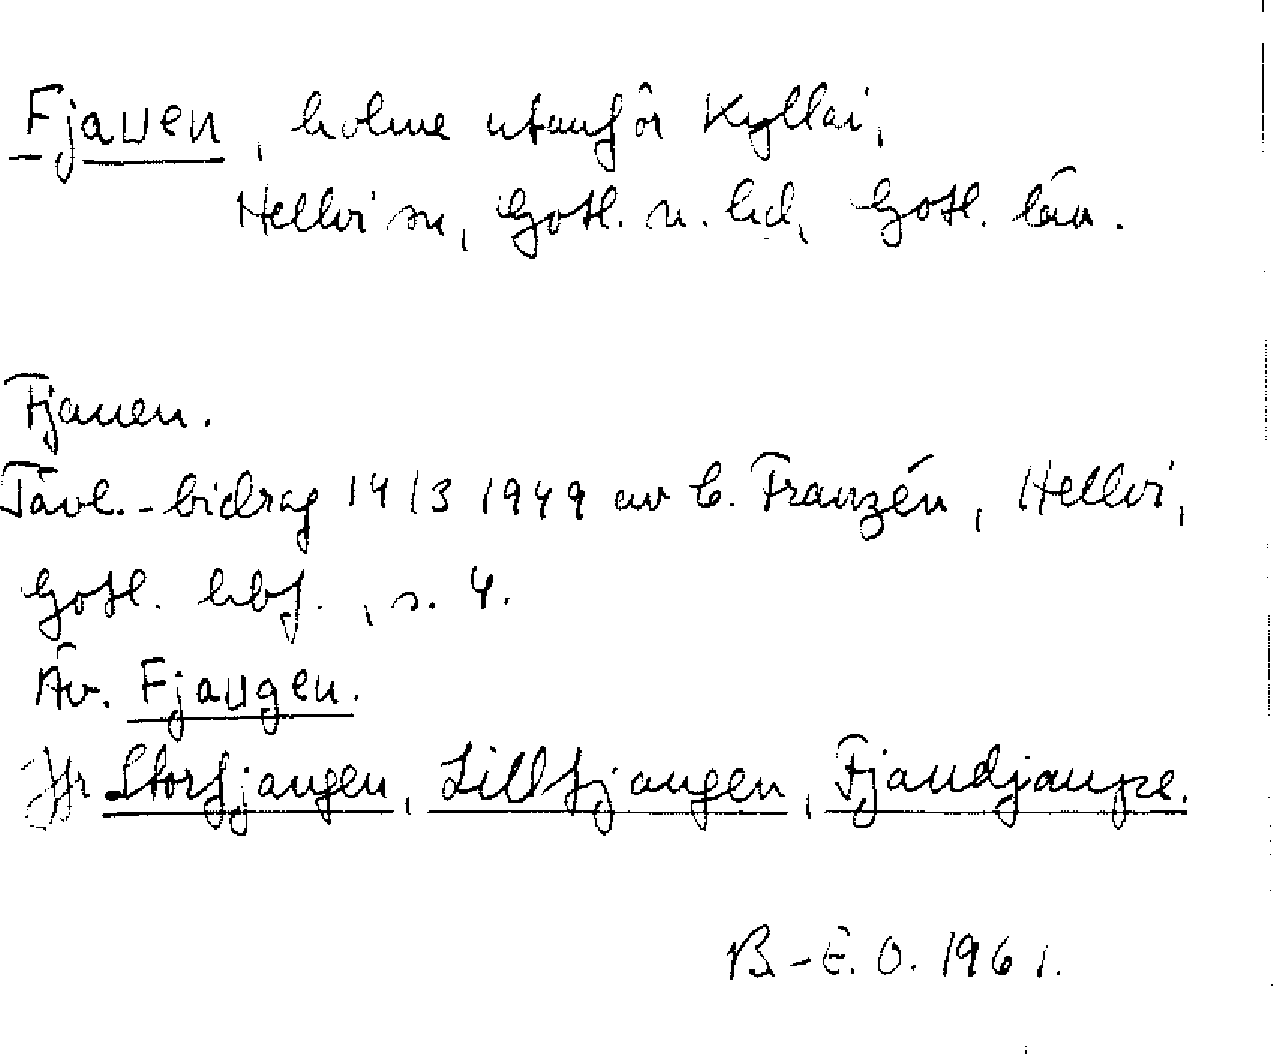 Fjauen, holme utanför Kyllai,
Hellvi sn, Gotl. n. hd, Gotl. län.
Fjauen.
Tävl.-bidrag 14/3 1949 av C. Franzén, Hellvi,
Gotl. hbf., s. 4.
Äv. Fjaugen.
Jfr Storfjaugen, Lillfjaugen, Fjaudjaupe.
B.-E. O. 1961.